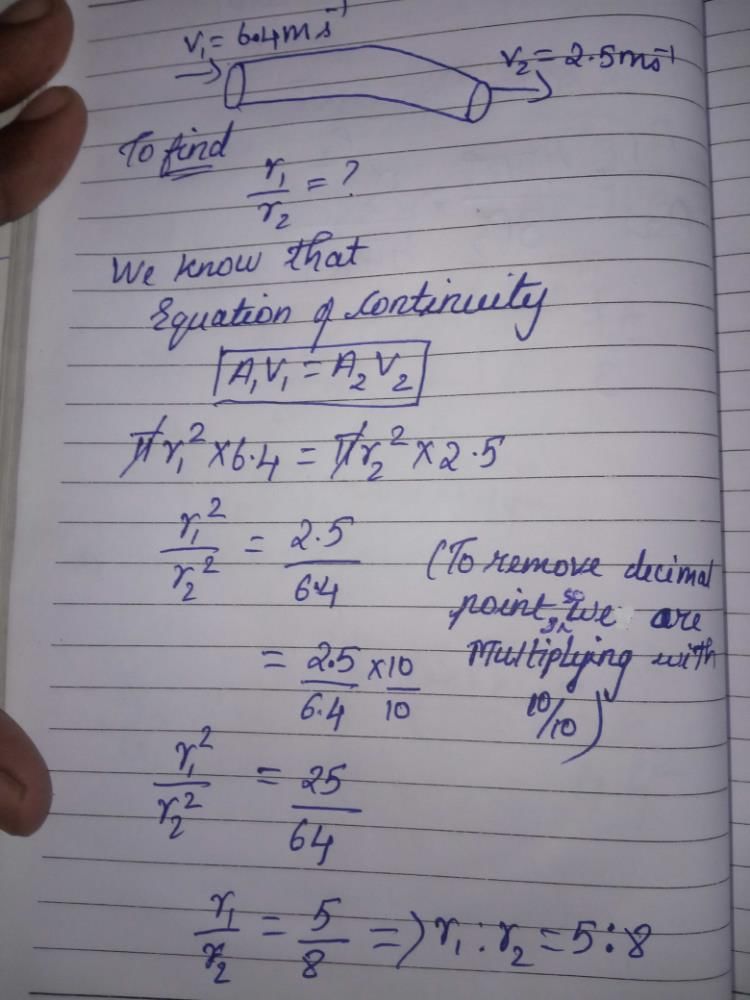 V₁ = 6.4 m s⁻¹
V₂ = 2.5 ms⁻¹
To find
r₁/r₂ = ?
We know that
Equation of Continuity
A₁V₁ = A₂V₂
πr₁² × 6.4 = πr₂² × 2.5
r₁²/r₂² = 2.5/6.4
(To remove decimal
point, so we are
Multiplying with
10/10)
= 2.5/6.4 × 10/10
r₁²/r₂² = 25/64
r₁/r₂ = 5/8 => r₁ : r₂ = 5 : 8